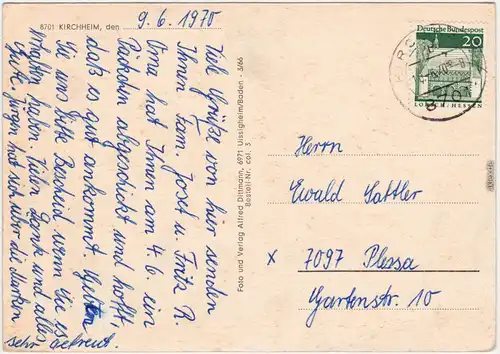 8701 KIRCHHEIM, den 9. 6. 1970
Viele Grüße von hier senden
Ihnen Fam. Jost u. Fritz R.
Oma hat Ihnen am 4. 6. ein
Päckchen abgeschickt und hofft,
daß es gut ankommt. Geben
Sie uns bitte Bescheid wenn Sie es
erhalten haben. Vielen Dank und alles
Gute. Jürgen hat sich über die Marken
sehr gefreut.
Foto und Verlag Alfred Dittmann, 6971 Uissigheim/Baden - 3/66
Bestell-Nr. col. 3
Deutsche Bundespost
20
LORSCH / HESSEN
Herrn
Ewald Sattler
x 7097 Plessa
Gartenstr. 10